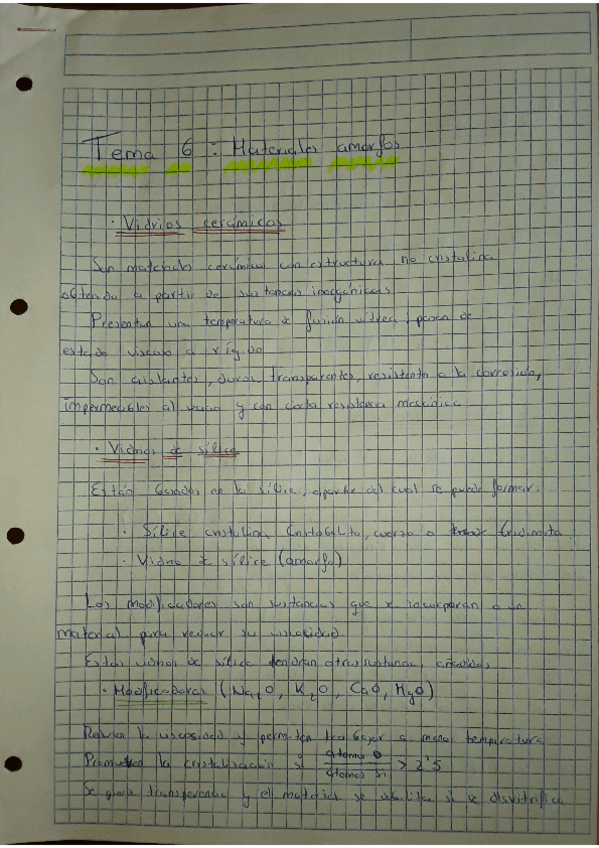 Tema 6 : Materiales amorfos
· Vidrios cerámicos
Son materiales cerámicos con estructura no cristalina
obtenida a partir de sustancias inorgánicas
Presentan una temperatura de fusión vítrea, pasan de
estado viscoso a rígido
Son aislantes, duros, transparentes, resistentes a la corrosión,
impermeables al vacío y con cierta resistencia mecánica
· Vidrios de sílice
Están basados en la sílice, a partir del cual se puede formar:
· Sílice cristalina Cristobalita, cuarzo o tridimita
· Vidrio de sílice (amorfo)
Los modificadores son sustancias que se incorporan a un
material para reducir su viscosidad
Estos vidrios de sílice tendrán otras sustancias añadidas
· Modificadores (Na2O, K2O, CaO, MgO)
Reducen la viscosidad y permiten trabajar a menos temperatura
Promueven la cristalización si átomos O / átomos Si > 2'5
Se pierde transparencia y el material se debilita si se desvitrifica